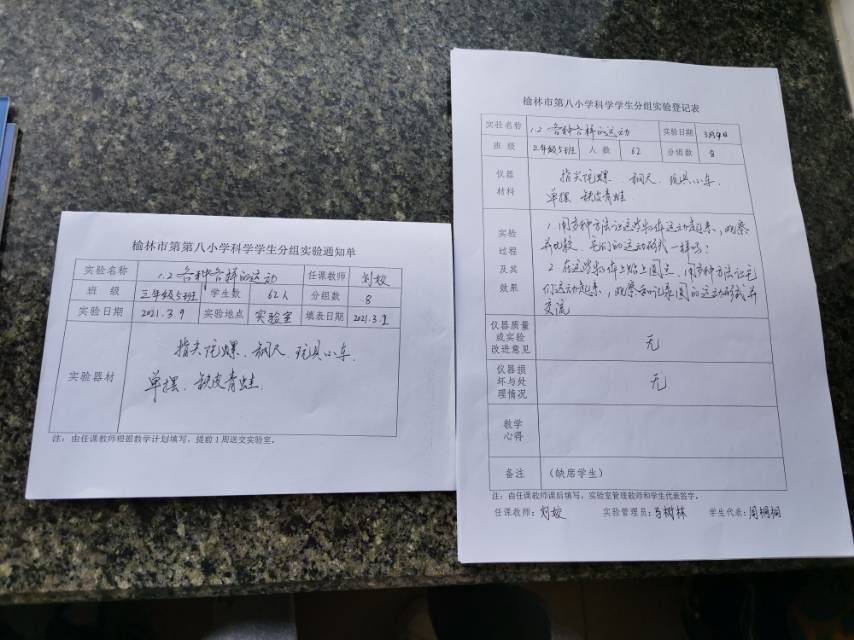 榆林市第第八小学科学学生分组实验通知单
实验名称 1.2 各种各样的运动 任课教师 刘姣
班 级 三年级5班 学生数 62人 分组数 8
实验日期 2021.3.9 实验地点 实验室 填表日期 2021.3.2
实验器材
指尖陀螺、钢尺、玩具小车、
单摆、铁皮青蛙.
注：由任课教师根据教学计划填写，提前1周送交实验室。
榆林市第八小学科学学生分组实验登记表
实验名称 1.2 各种各样的运动 实验日期 3月9日
班 级 三年级5班 人 数 62 分组数 8
仪器
材料
指尖陀螺、钢尺、玩具小车、
单摆、铁皮青蛙
实验
过程
及其
效果
1.用多种方法让这些物体运动起来，观察
并比较，它们的运动形式一样吗？
2.在这些物体上贴上圆点、用多种方法让它
们运动起来，观察和记录圆的运动形式并
交流
仪器质量
或实验
改进意见
无
仪器损
坏与处
理情况
无
教学
心得
备注 （缺席学生）
注：由任课教师课后填写，实验室管理教师和学生代表签字。
任课教师：刘姣 实验管理员：马树林 学生代表：周桐桐